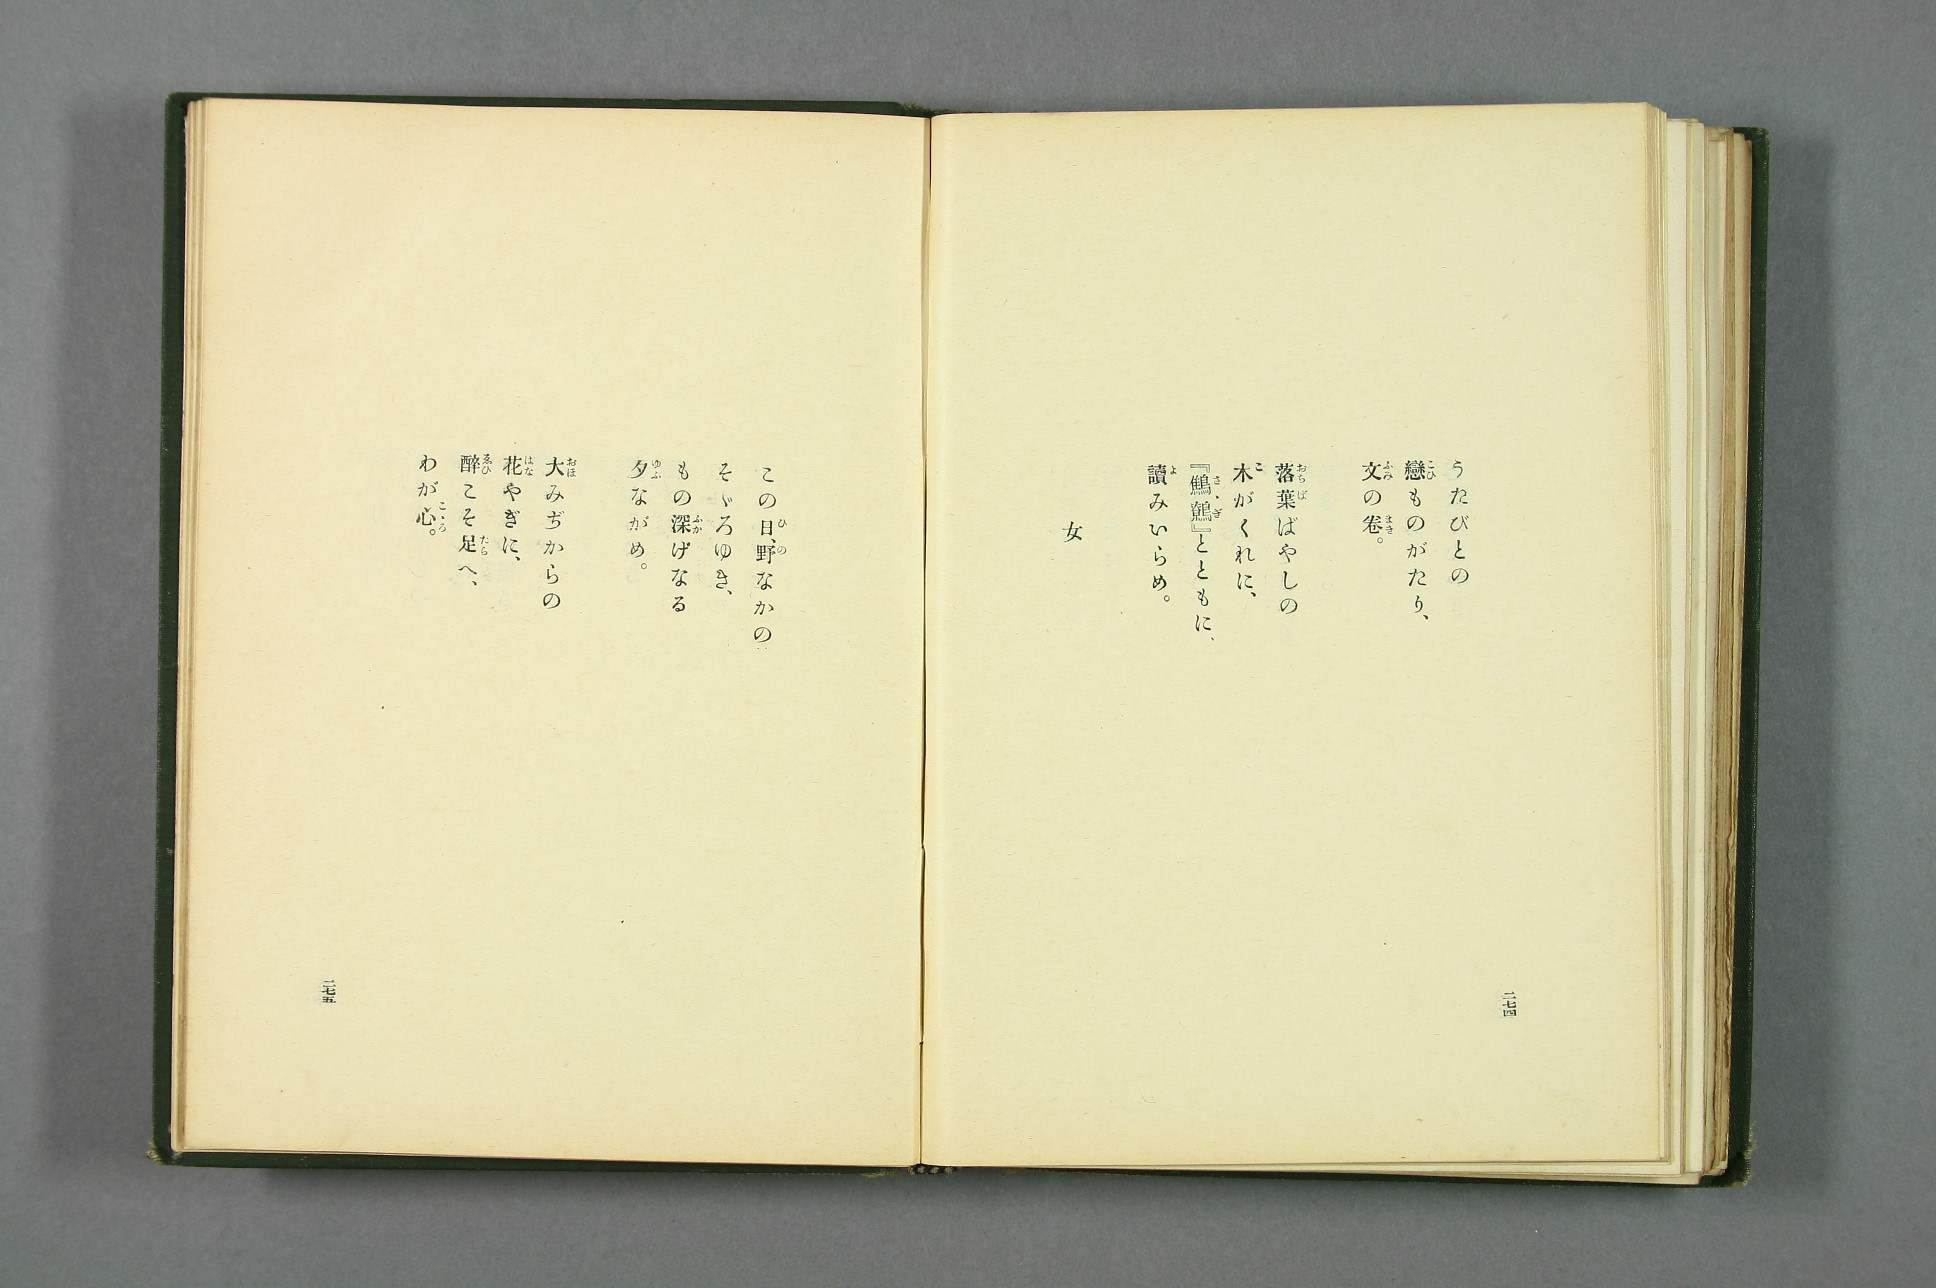 うたびとの
戀ものがたり、
文の卷。
落葉ばやしの
木がくれに、
『鷦鷯』とともに、
讀みいらめ。
女
二七四
この日、野なかの
そゞろゆき、
もの深げなる
夕ながめ。
大みぢからの
花やぎに、
醉こそ足へ、
わが心。
二七五